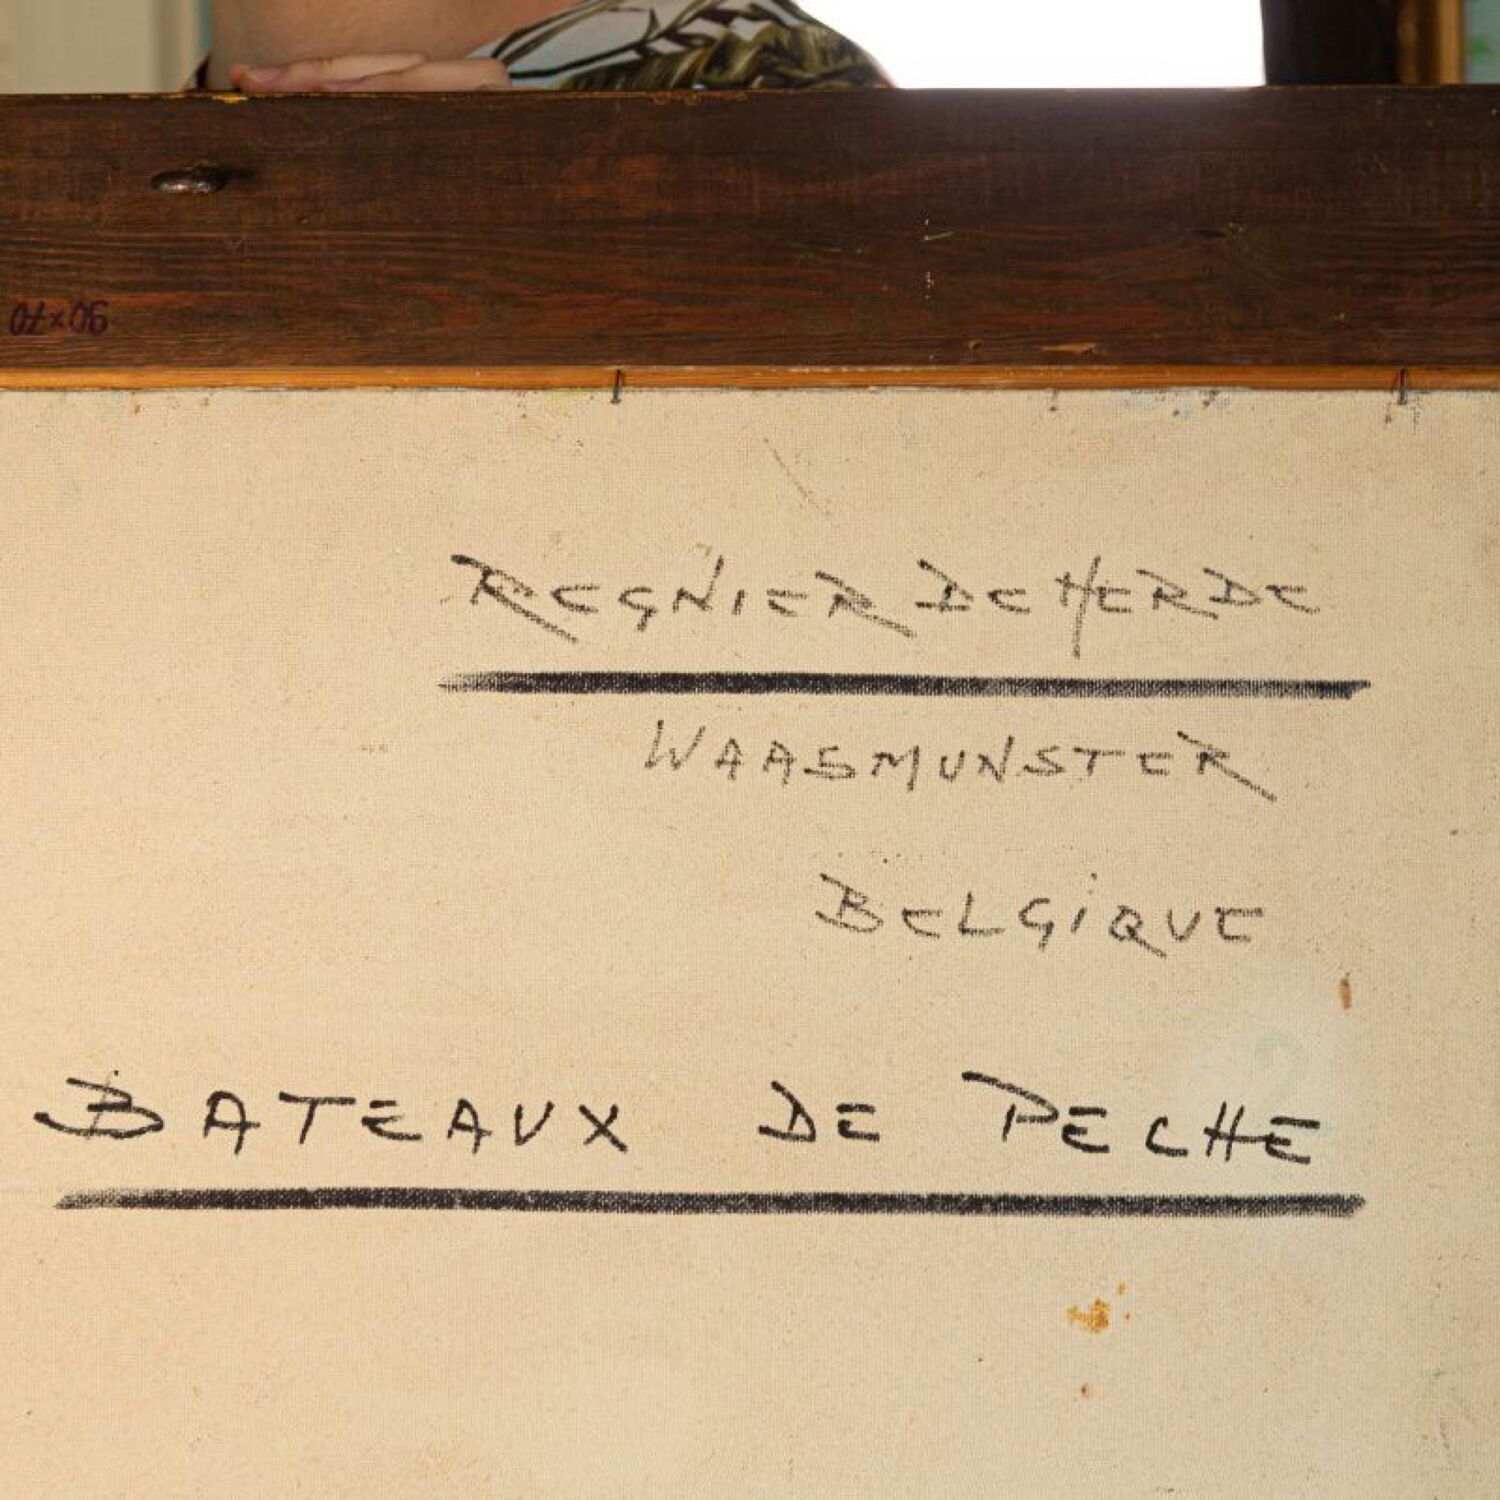 90x70
REGNIER DE HERDE
WAASMUNSTER
BELGiQUE
BATEAUX DE PECHE